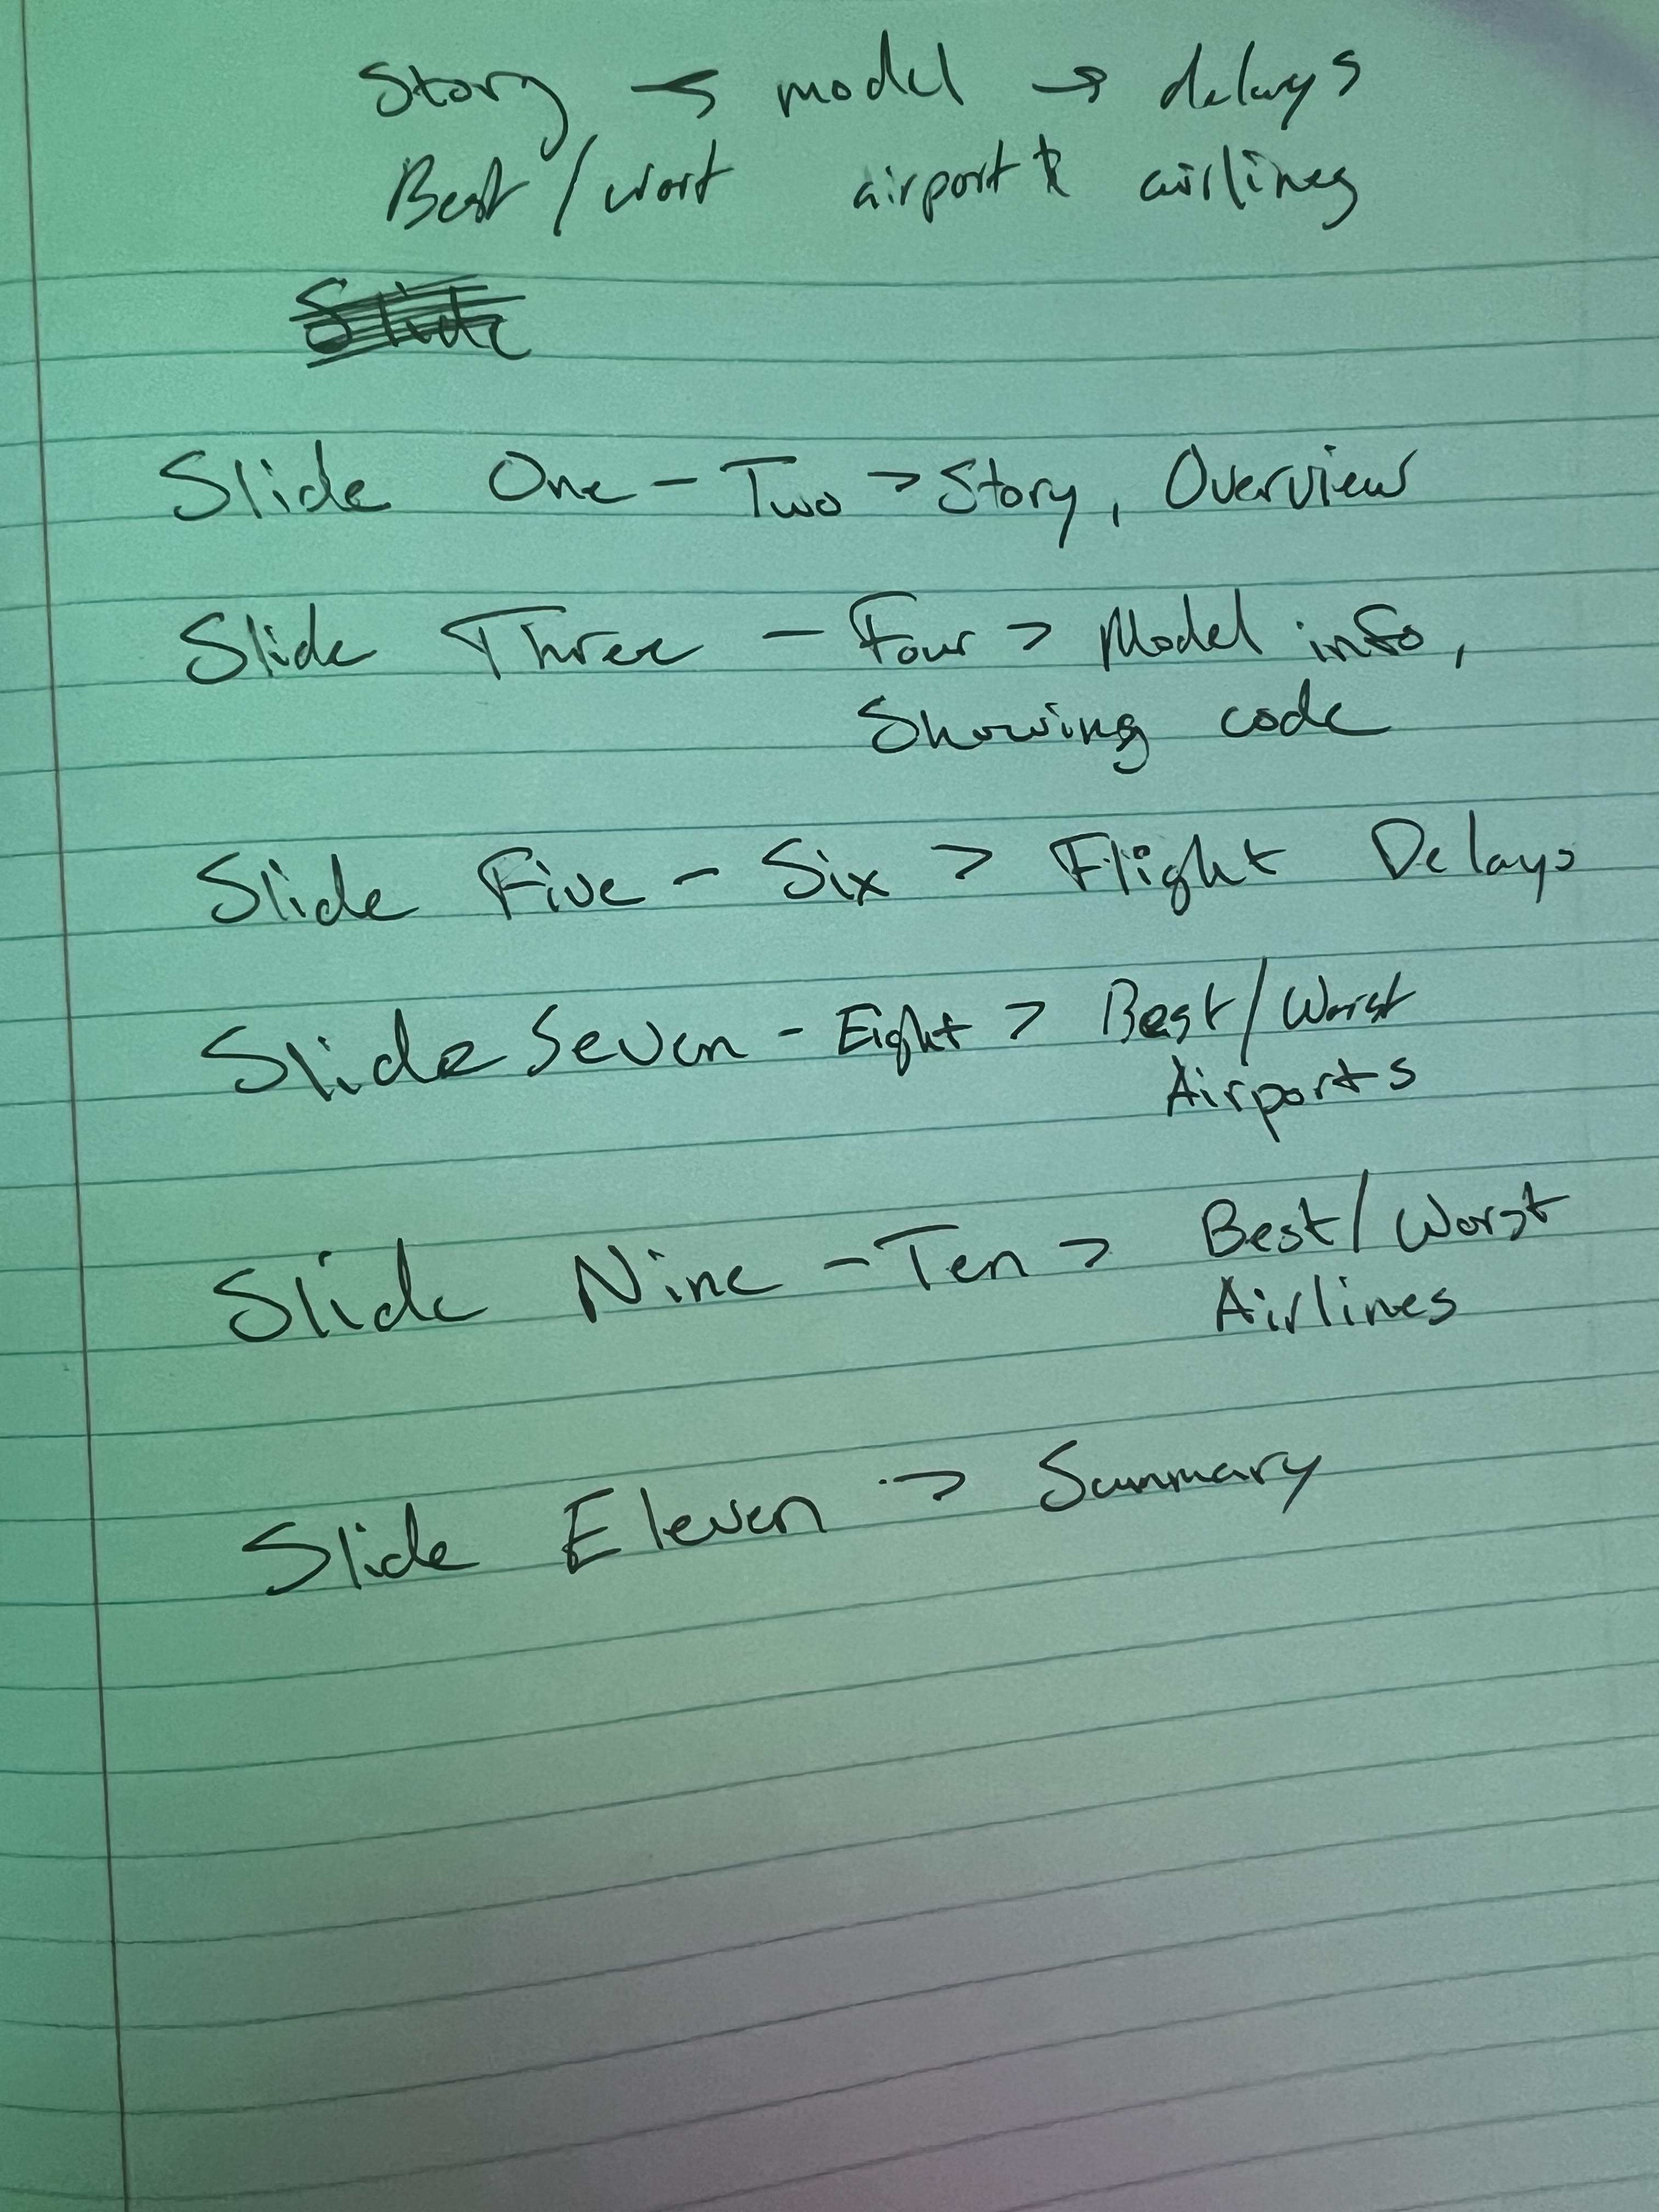 Story → model → delays
Best / wort airport & airlines
Slide
Slide One - Two > Story, Overview
Slide Three - Four > Model info,
Showing code
Slide Five - Six > Flight Delays
Slide Seven - Eight > Best/Worst
Airports
Slide Nine - Ten > Best/Worst
Airlines
Slide Eleven -> Summary